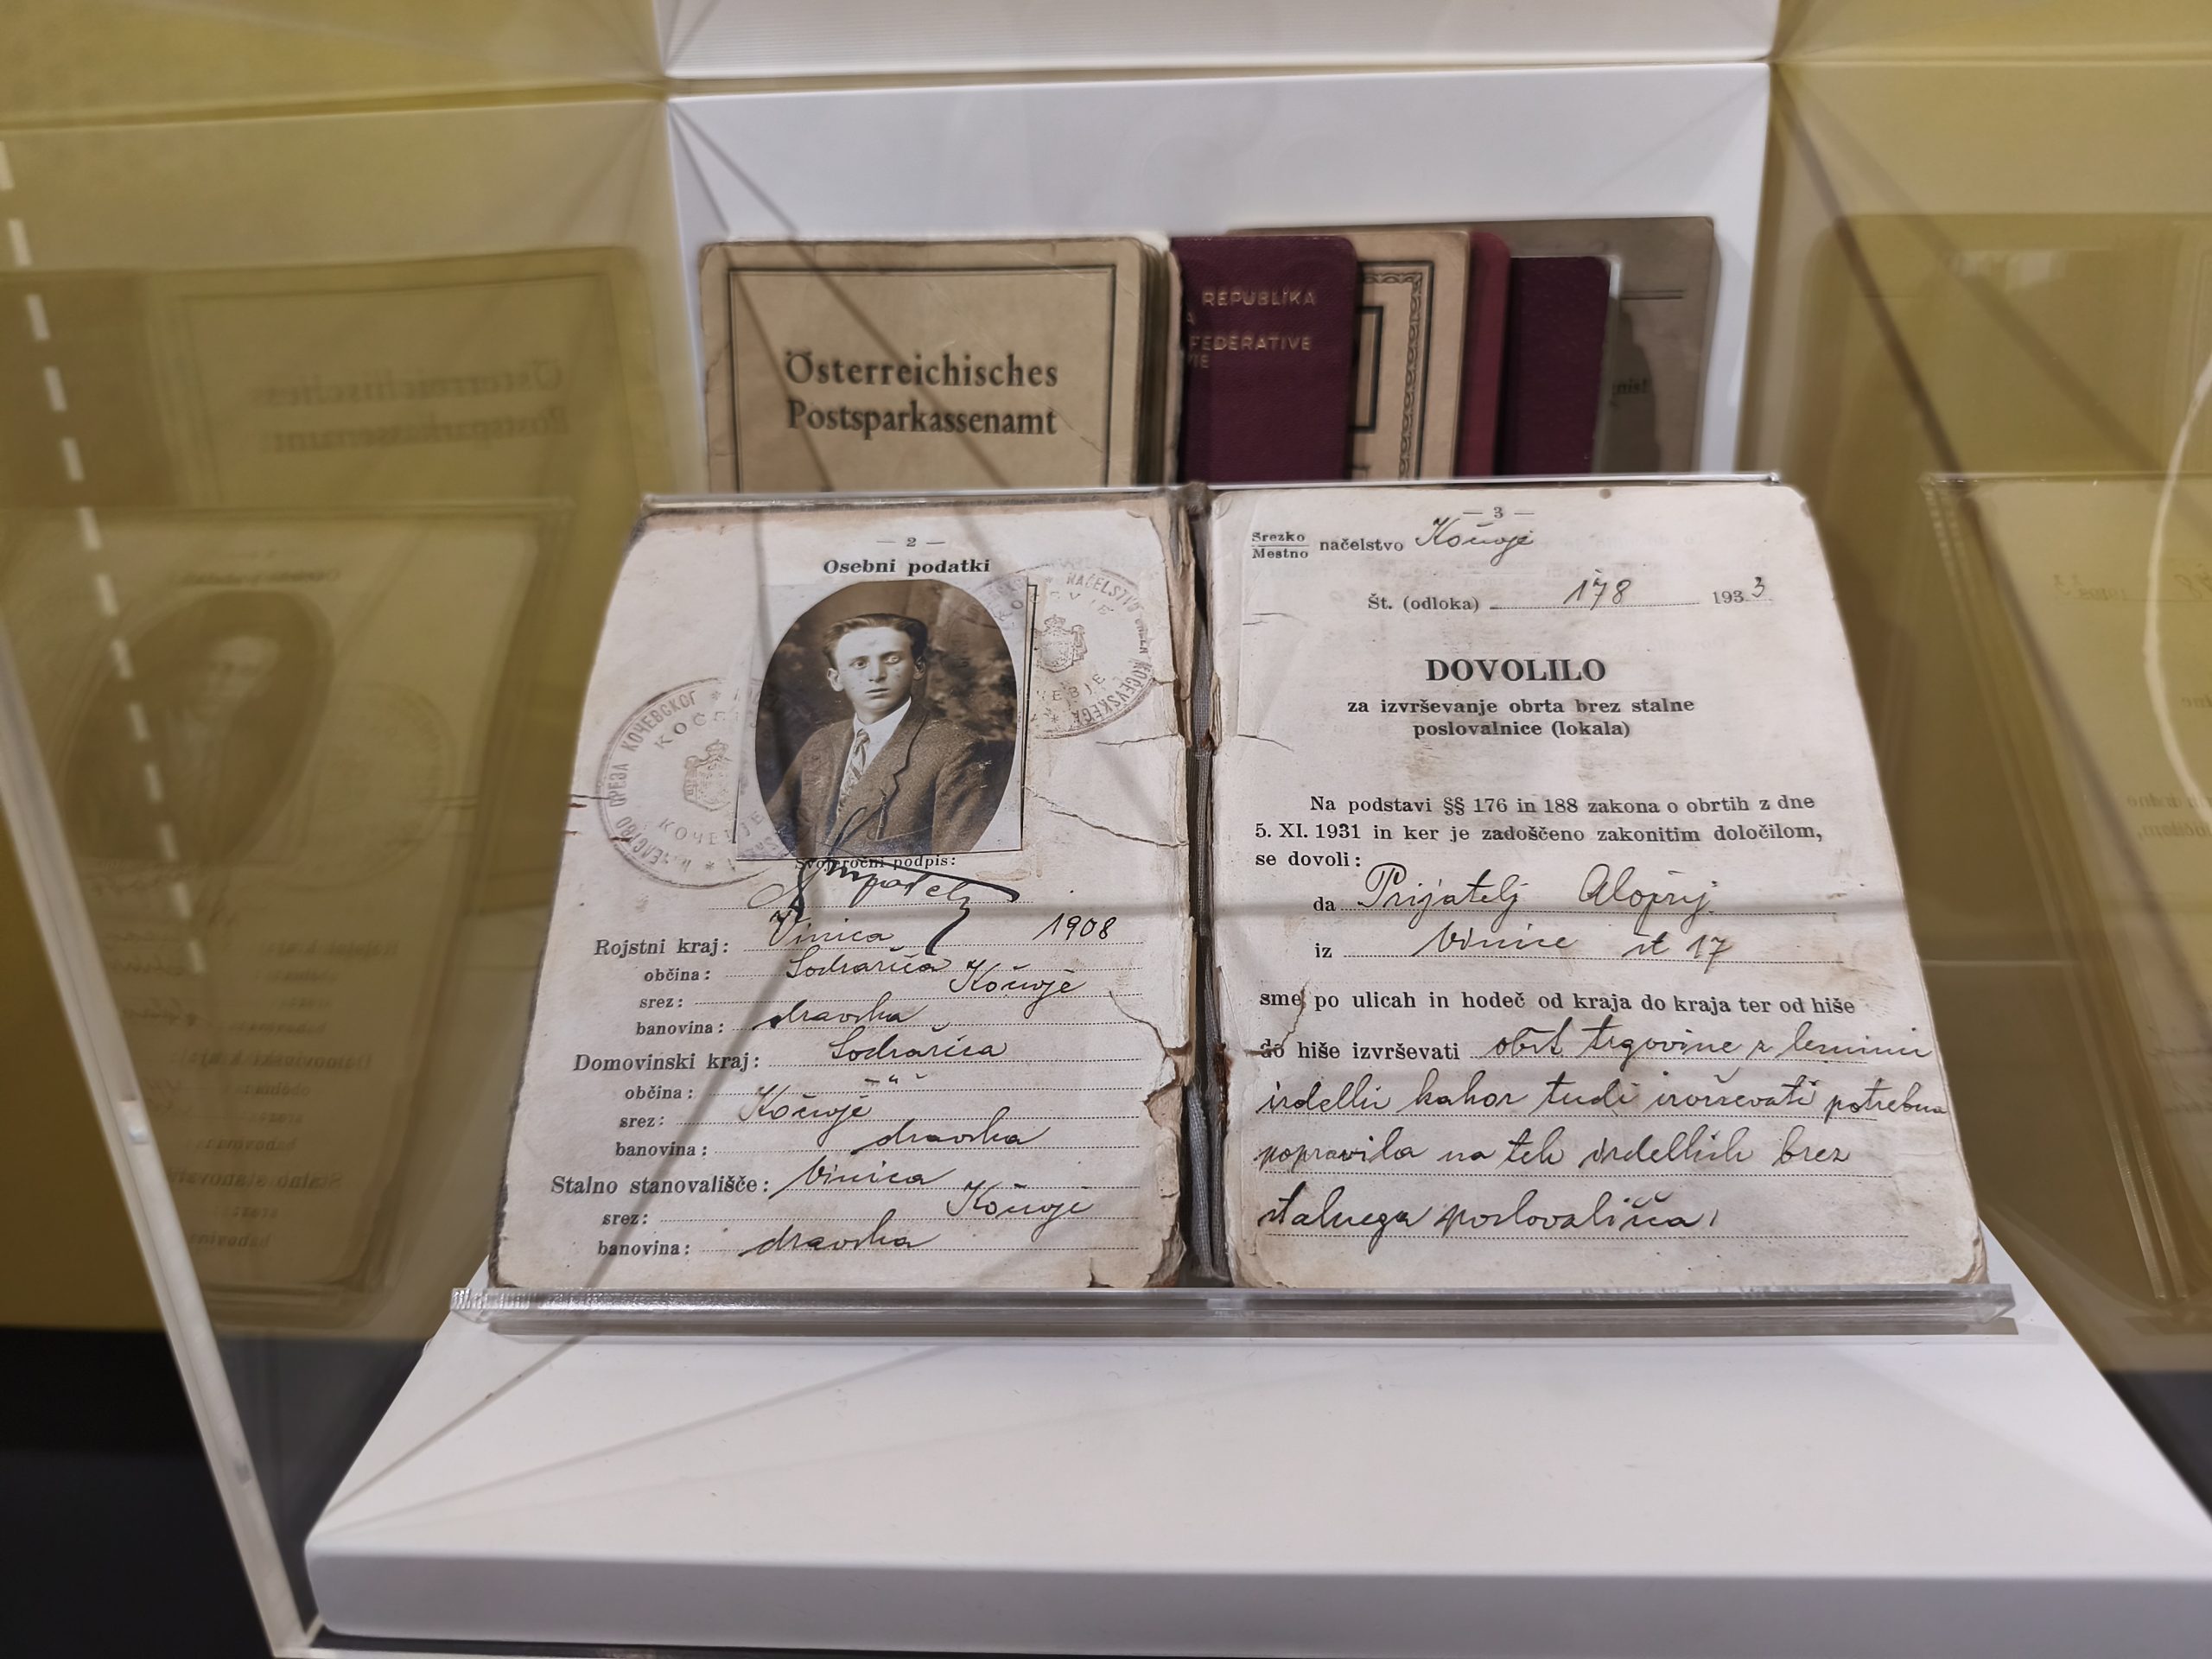 Österreichisches
Postsparkassenamt
REPUBLIKA
FEDERATIVE
— 2 —
Osebni podatki
NAČELSTVO KOČEVSKEGA
КОЧЕВСКОГ
СРЕЗА
КОЧЕВЈЕ
Svojeročni podpis:
Rojstni kraj: Vinica 1908
občina: Sodražica
srez: Kočevje
banovina: dravska
Domovinski kraj: Sodražica
občina: — " —
srez: Kočevje
banovina: dravska
Stalno stanovališče: Vinica
srez: Kočevje
banovina: dravska
— 3 —
Srezko
Mestno načelstvo Kočevje
Št. (odloka) 178 1933
DOVOLILO
za izvrševanje obrta brez stalne
poslovalnice (lokala)
Na podstavi §§ 176 in 188 zakona o obrtih z dne
5. XI. 1931 in ker je zadoščeno zakonitim določilom,
se dovoli:
da Prijatelj Alojzij
iz Vinice št 17
sme po ulicah in hodeč od kraja do kraja ter od hiše
do hiše izvrševati obrt trgovine z lesnimi
izdelki kakor tudi izvrševati potrebna
popravila na teh izdelkih brez
stalnega poslovališča,